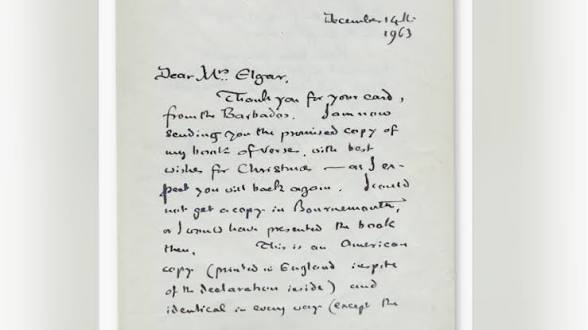 December 14th
1963
Dear Mrs. Elgar,
Thank you for your card,
from the Barbados. I am now
sending you the promised copy of
my book of verse, with best
wishes for Christmas — as I ex-
pect you will back again. I could
not get a copy in Bournemouth,
or I would have presented the book
then. This is an American
copy (printed in England in spite
of the declaration inside) and
identical in every way (except the